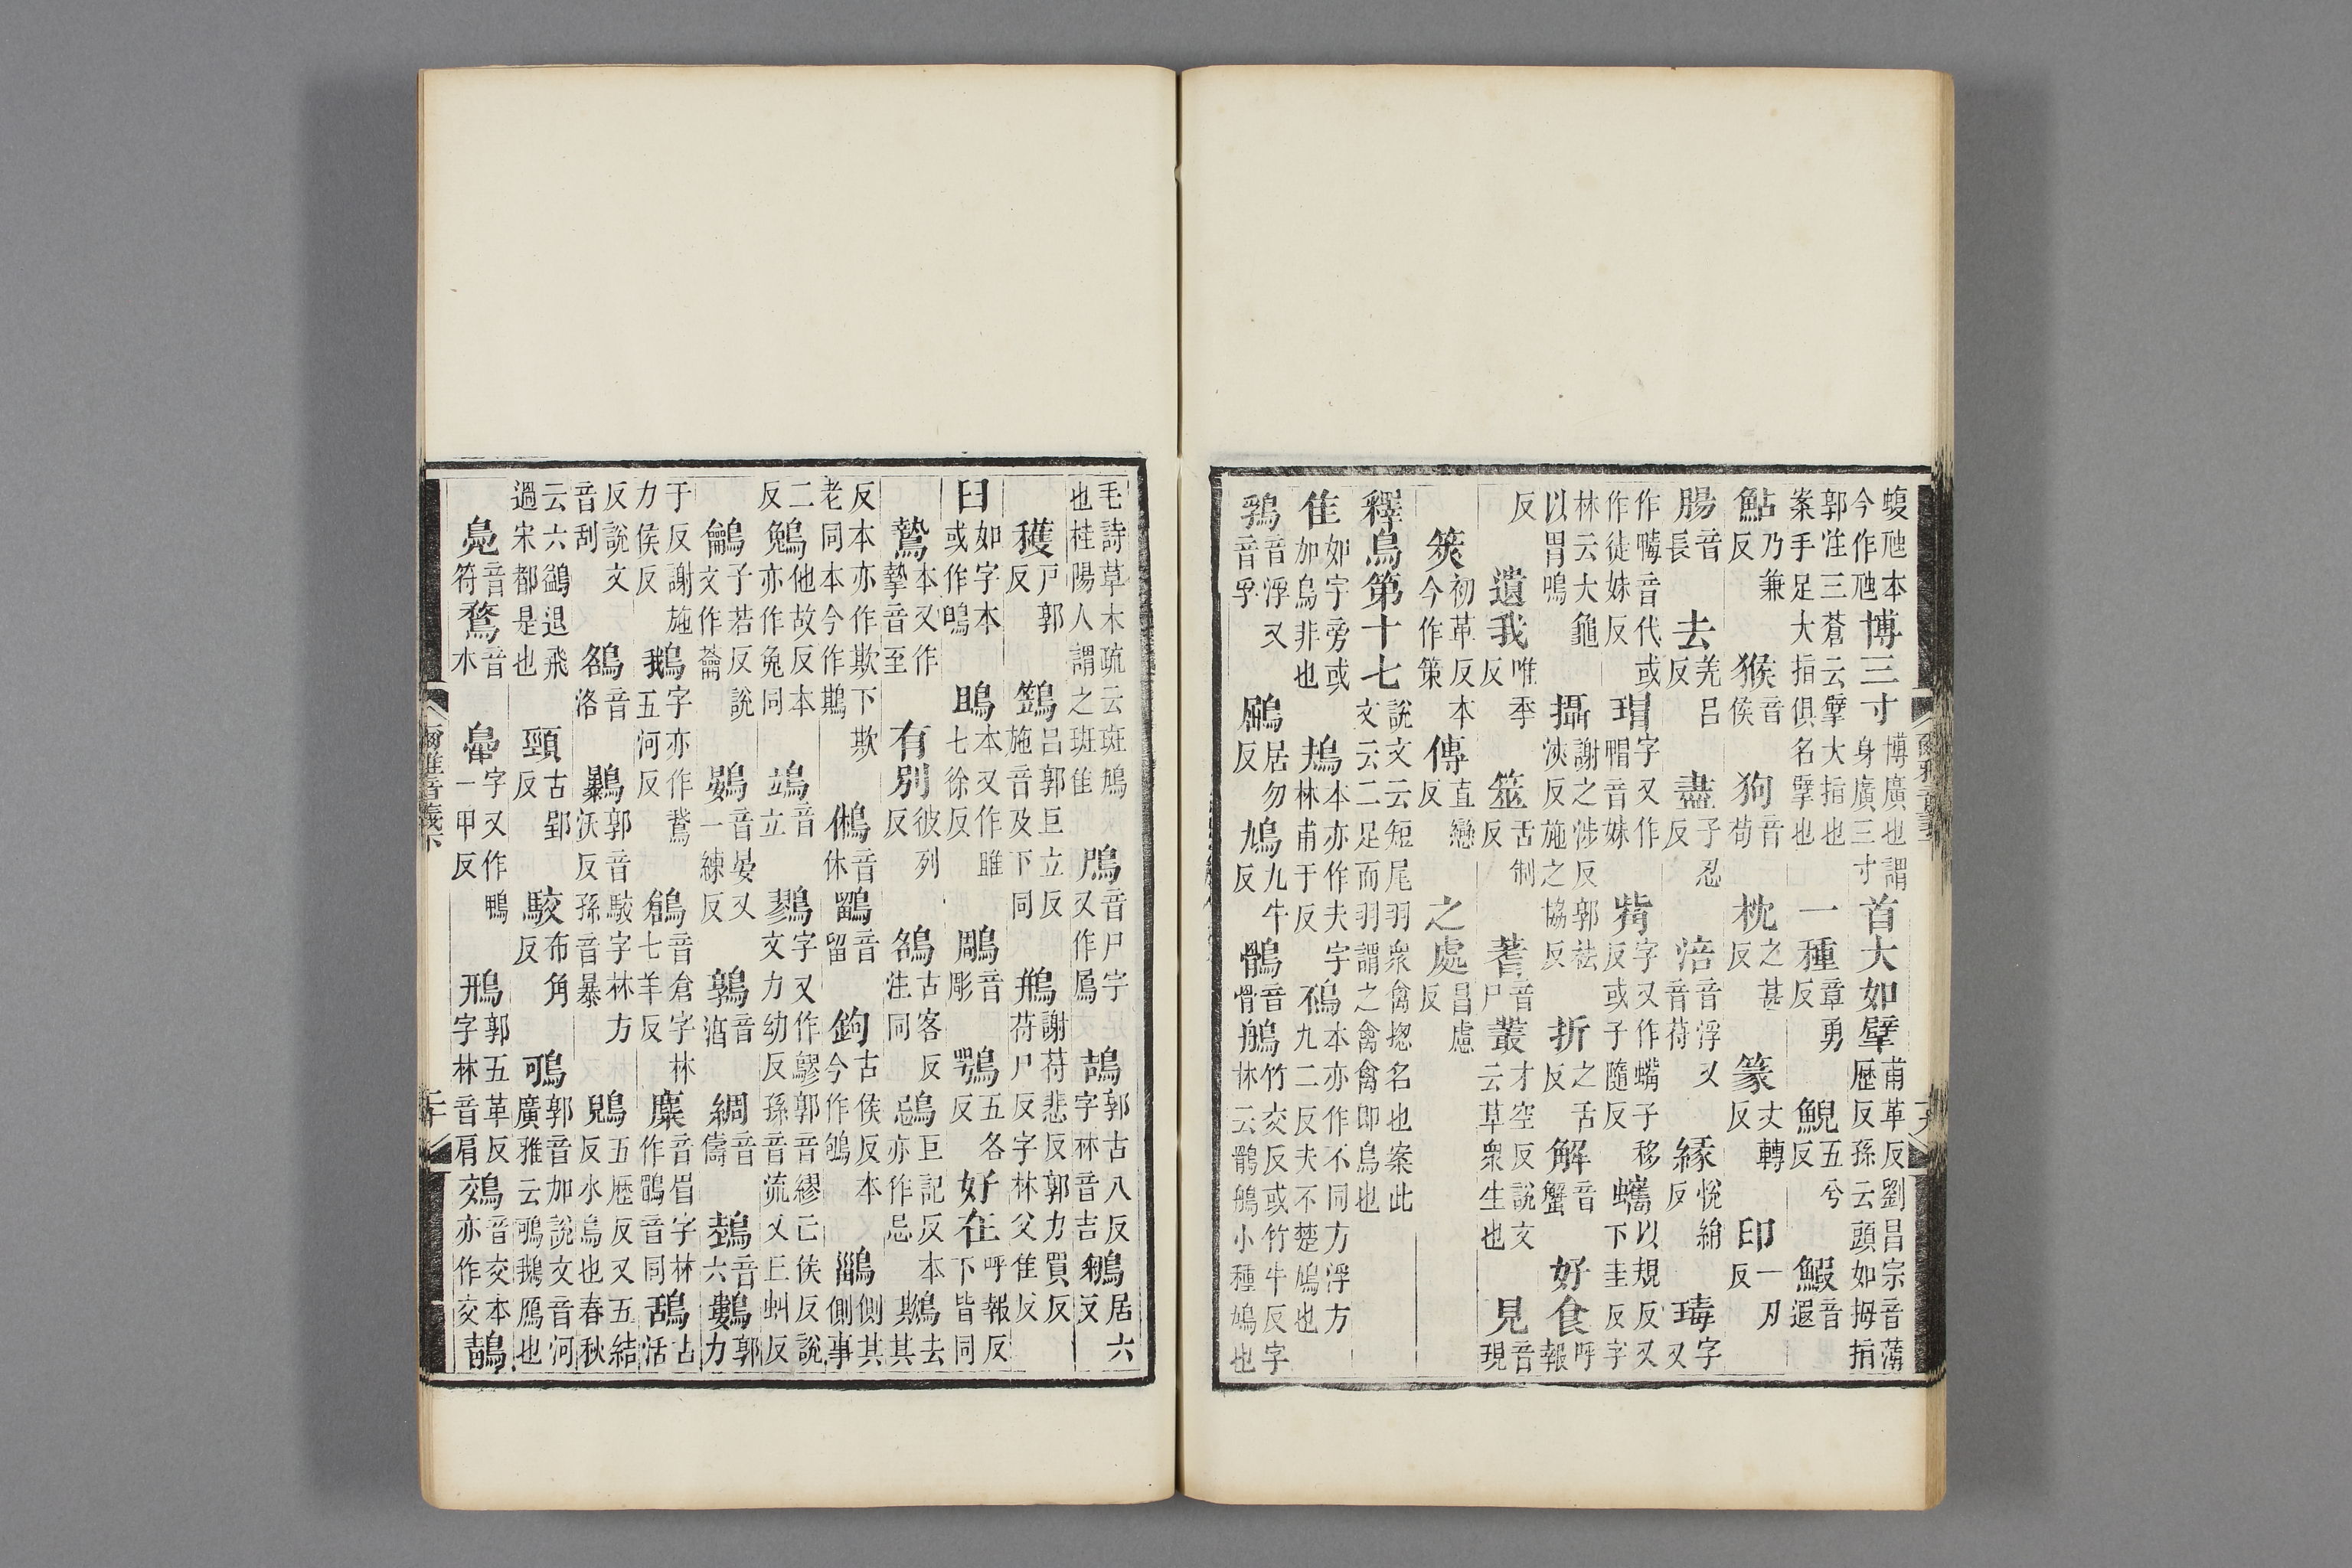 蝮虺本今作虺博三寸博廣也謂身廣三寸首大如擘甫革反劉昌宗音薄歷反孫云頭如拇指
郭注三蒼云擘大指也案手足大指俱名擘也一種章勇反鯢五兮反鰕音遐
鮎乃兼反猴音侯狗音苟枕之甚反篆丈轉反印一刃反
腸音長去羌呂反盡子忍反涪音浮又音苻緣悅絹反瑇字又
作蝳音代或作徒妹反瑁字又作帽音妹觜字又作蟕子移反或子隨反蠵以規反又下圭反字
林云大龜以胃鳴攝謝之涉反郭祛浹反施之協反折之舌反解音蟹好食呼報
反遺我唯季反筮舌制反蓍音尸叢才空反說文云草衆生也見音現
筴初革反本今作策傳直戀反之處昌慮反
釋鳥第十七說文云短尾羽衆禽揔名也案此文云二足而羽謂之禽禽即鳥也
隹如字旁或加鳥非也鳺本亦作夫字林甫于反鴀本亦作不同方浮方九二反夫不楚鳩也
音浮又音孚鶌居勿反鳩九牛反鶻音骨鵃竹交反或竹牛反字林云鶻鵃小種鳩也
毛詩草木疏云斑鳩也桂陽人謂之斑隹鳲音尸字又作鳲鴶郭古八反字林音吉鵴居六反
穫戸郭反鷑呂郭巨立反施音及下同鵧謝苻悲反郭力買反苻尸反字林父隹反
臼如字本或作鴭鴡本又作雎七徐反鵰音彫鶚五各反好在呼報反下皆同
鷙本又作摯音至有别彼列反鵅古客反注同鵋巨記反本亦作忌䳢去其
反本亦作欺下欺老同本今作鶀鵂音休鶹音留鉤古侯反本今作鴝鶅側其側事
二反鵵他故反本亦作兔同鴗音立鷚字又作鷚郭音繆亡侯反說文力幼反孫音流又巨虯反
鸙子若反說文作蘥鷃音晏又一練反鶉音湻綢音儔鵱音六鷜郭力
于反謝施力侯反鵝字亦作鵞五河反鶬音倉字林七羊反麋音眉字林作鶥音同鴰古活
反說文音刮鵅音洛鸔郭音駮字林方沃反孫音暴鶂五歷反又五結反水鳥也春秋
云六鷁退飛過宋都是也頸古郢反駮布角反鴚郭音加說文音河廣雅云鴚鵝鴈也
鳧音符鶩音木鴨字又作鴨一甲反鳽郭五革反字林音肩鵁音交本亦作交鶄